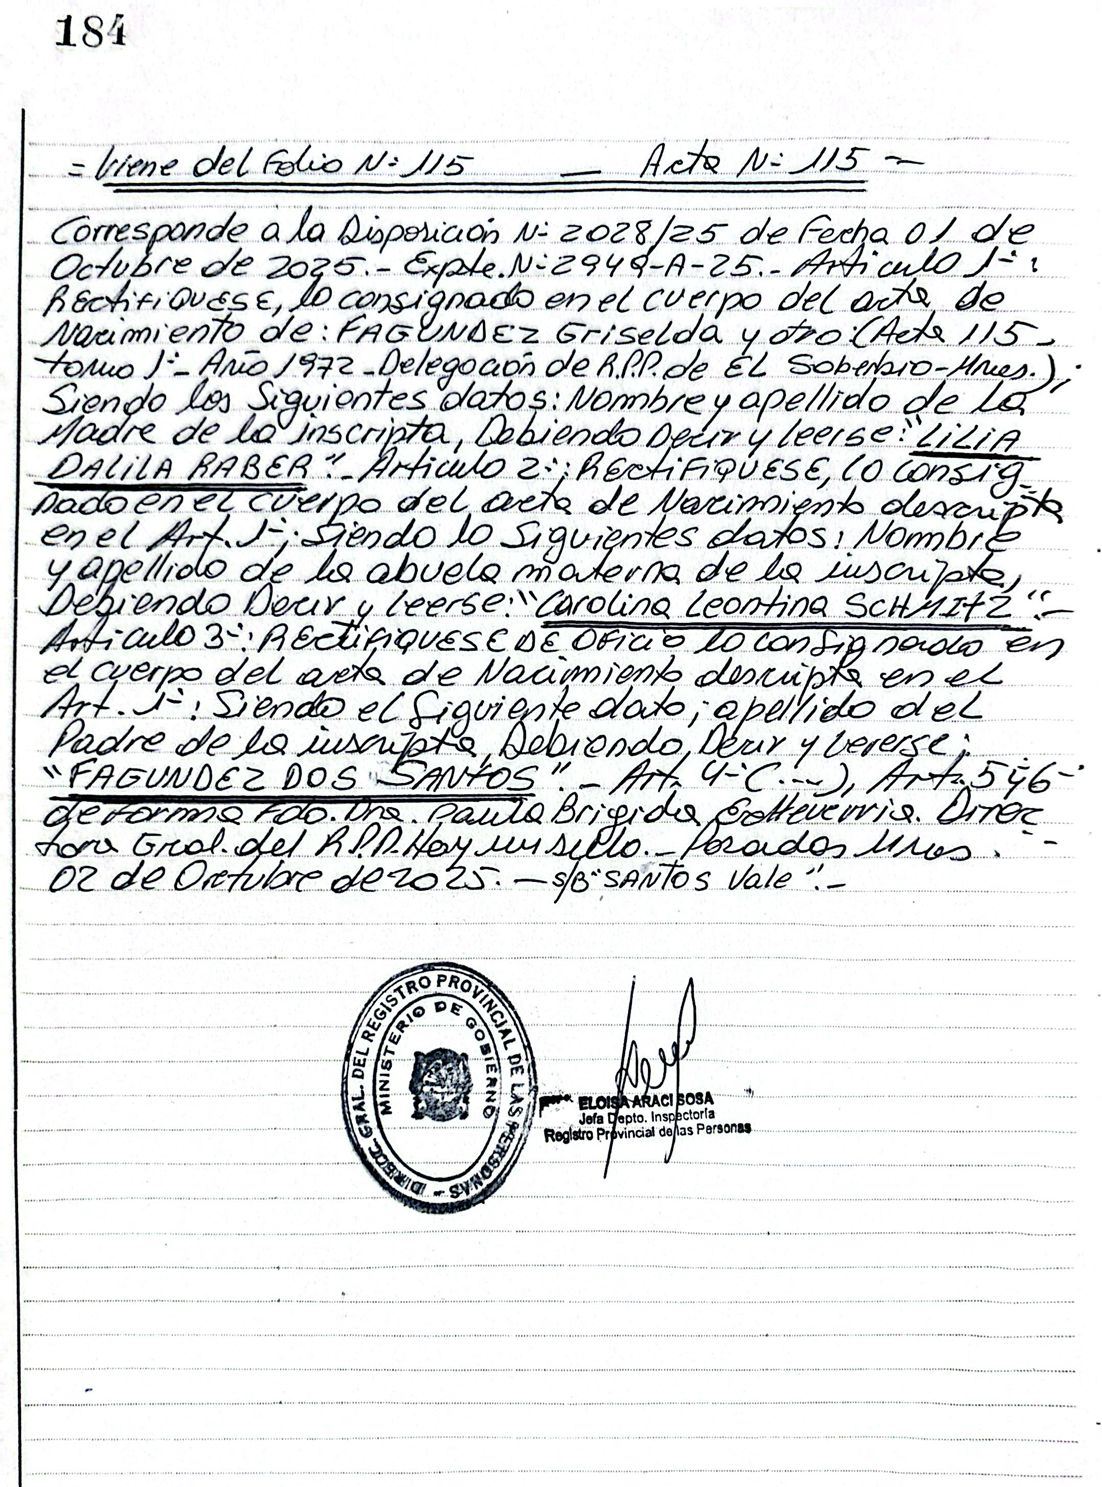 184
= Viene del Folio N: 115 — Acta N: 115 —
Corresponde a la Disposición N: 2028/25 de Fecha 01 de
Octubre de 2025.- Expte. N: 2949-A-25.- Articulo 1-:
RECTIFIQUESE, lo consignado en el cuerpo del acta de
Nacimiento de: FAGUNDEZ Griselda y otro: (Acta 115 -
tomo 1- Año 1972 - Delegación de R.P.P. de EL Soberbio-Mnes.);
Siendo los Siguientes datos: Nombre y apellido de la
Madre de la inscripta, Debiendo Decir y leerse: "LILIA
DALILA RABER".- Articulo 2-: RECTIFIQUESE, lo consig-
nado en el cuerpo del acta de Nacimiento descripta
en el Art. 1-; Siendo lo Siguientes datos: Nombre
y apellido de la abuela materna de la inscripta,
Debiendo Decir y leerse: "Carolina Leontina SCHMITZ".-
Articulo 3-: RECTIFIQUESE DE Oficio lo consignado en
el cuerpo del acta de Nacimiento descripta en el
Art. 1-: Siendo el Siguiente dato; apellido del
Padre de la inscripta, Debiendo, Decir y Lererse:
"FAGUNDEZ DOS SANTOS".- Art. 4- (---), Art. 5 y 6-
de forma Fdo. Dra. Paula Brigida Direc
tora Gral. del R.P.P. Hay un sello.- Posadas Mnes. -
02 de Octubre de 2025. - s/B "SANTOS Vale".-
DIREC. GRAL. DEL REGISTRO PROVINCIAL DE LAS PERSONAS -
MINISTERIO DE GOBIERNO
ELOISA ARACI SOSA
Jefa Depto. Inspectoría
Registro Provincial de las Personas